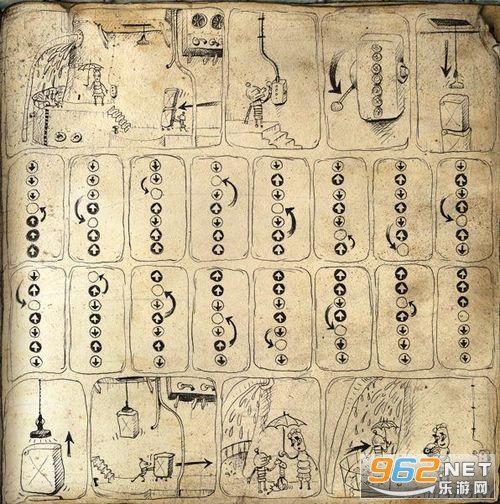 962.NET
乐游网